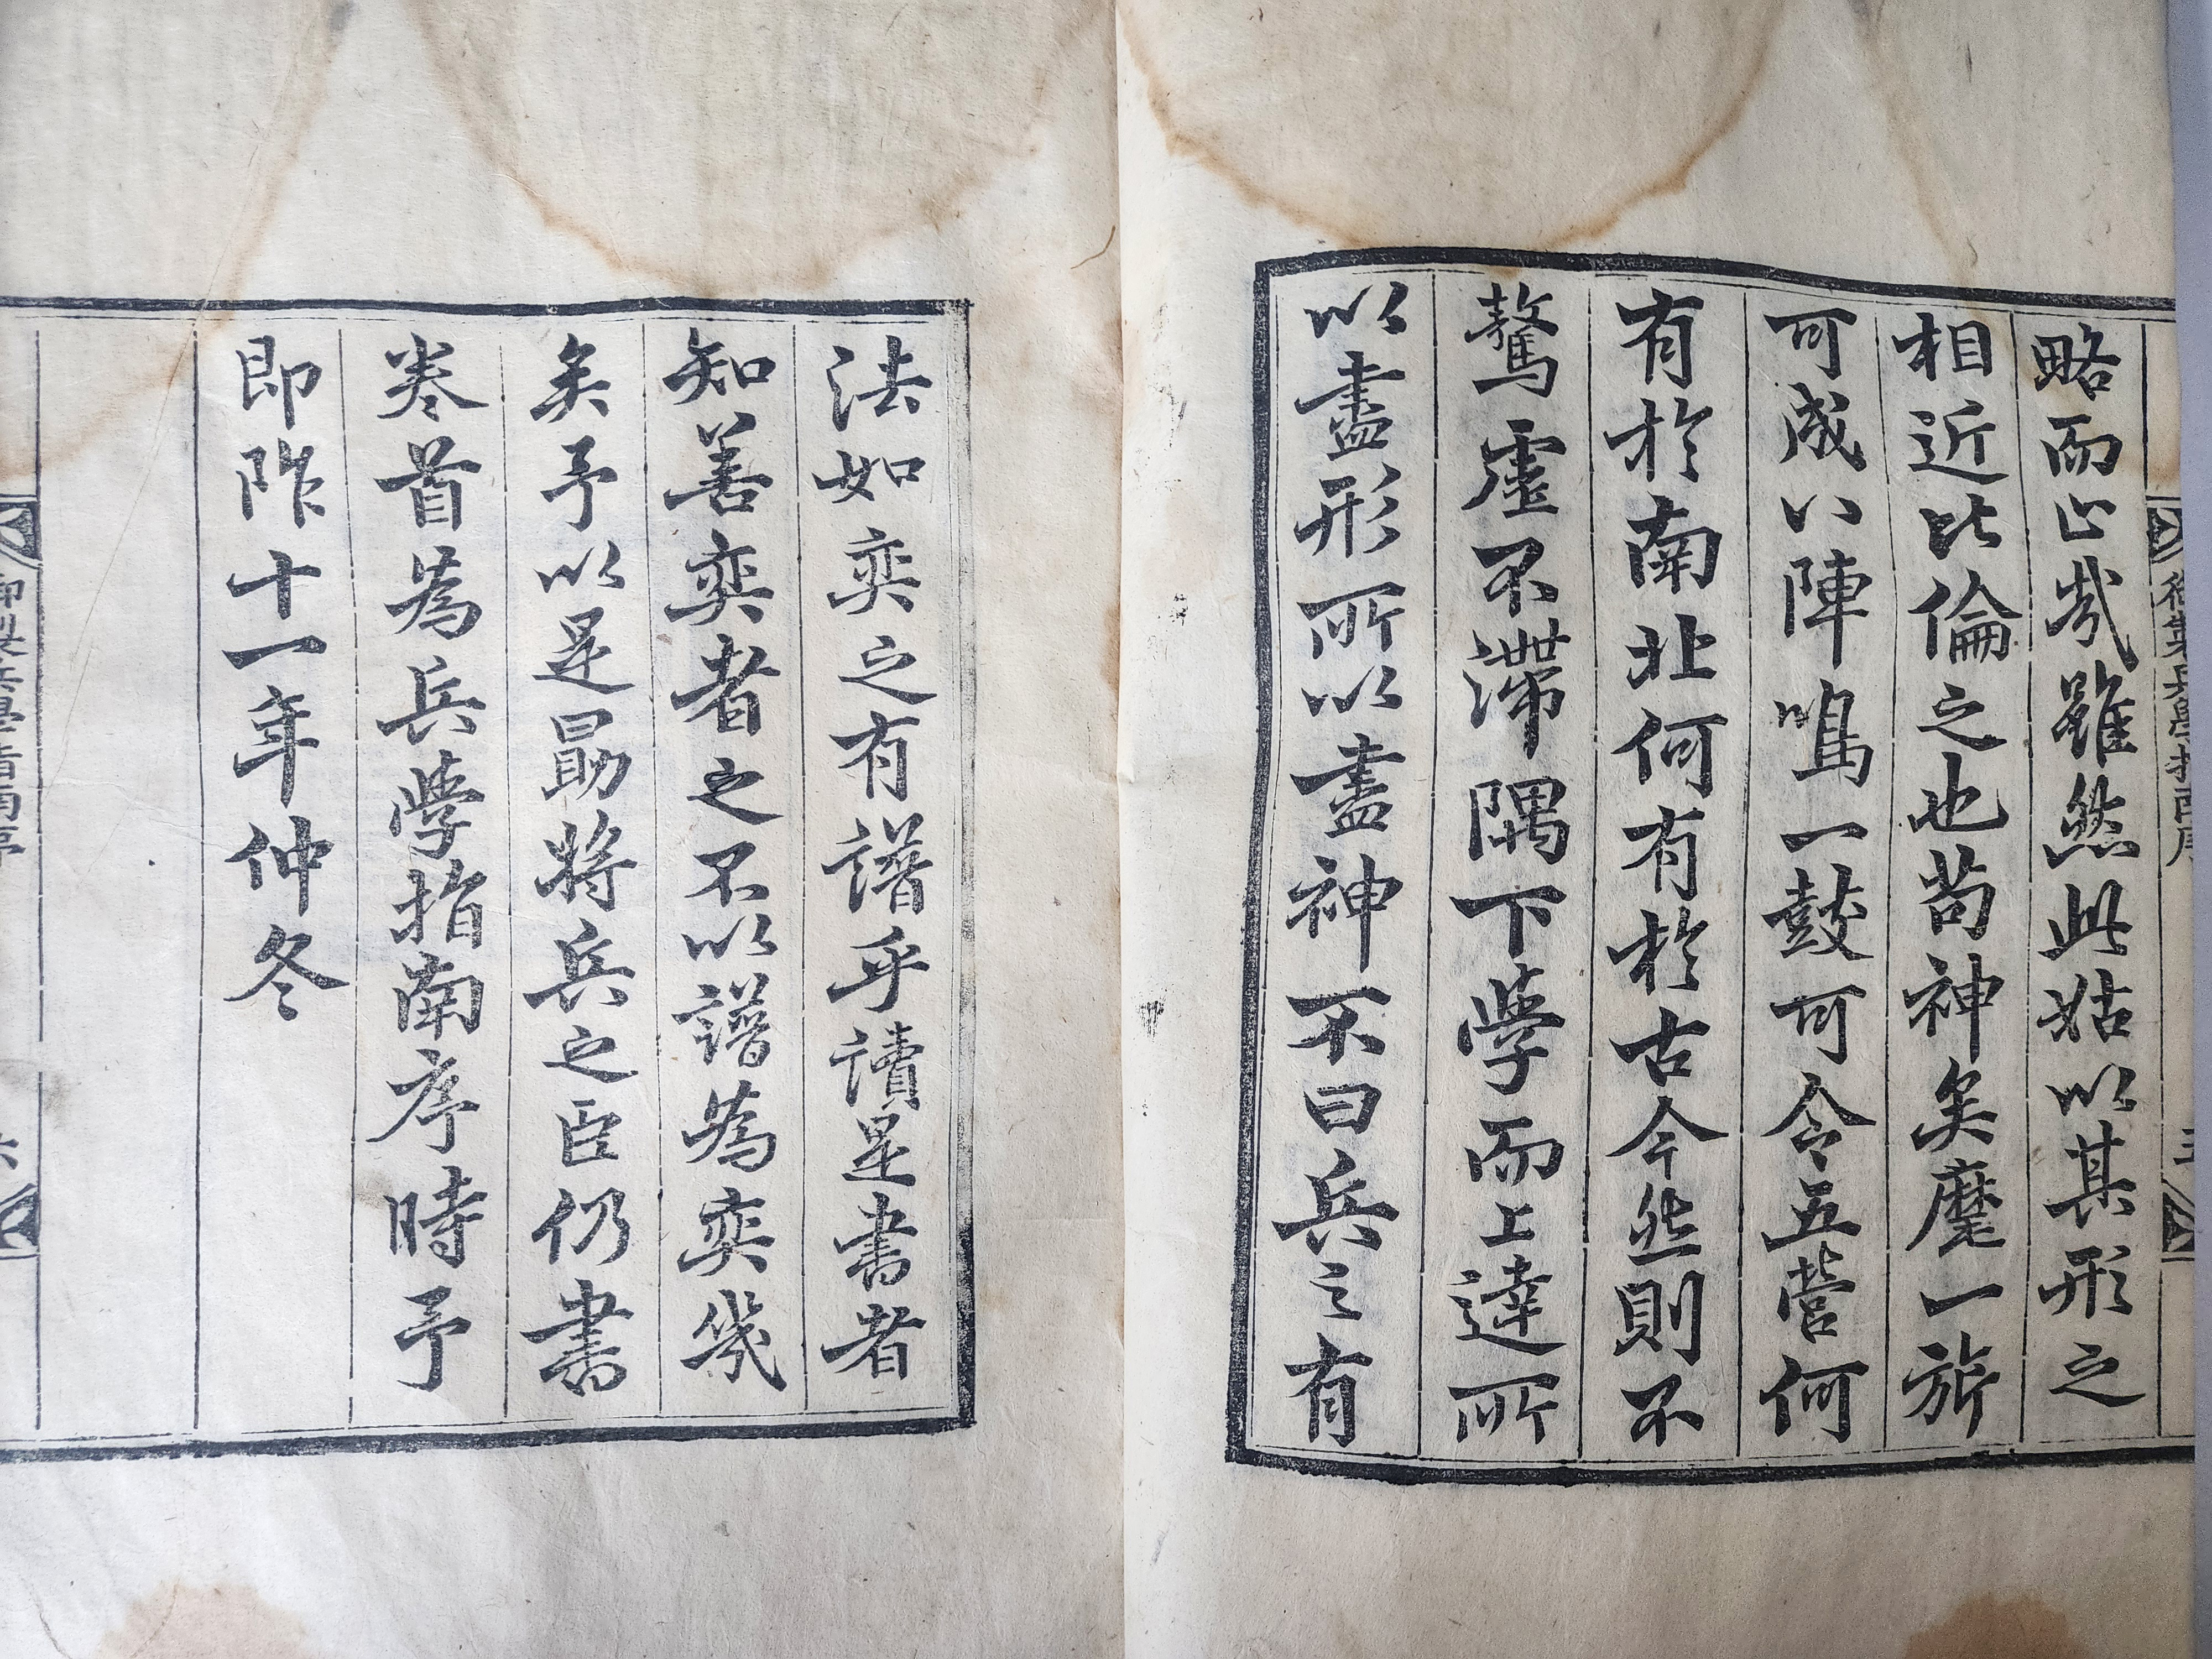 略而止哉雖然此姑以其形之
相近比倫之也苟神矣麾一旂
可成八陣鳴一鼓可令五營何
有於南北何有於古今然則不
騖虛不滯隅下學而上達所
以盡形所以盡神不曰兵之有
法如奕之有譜乎讀是書者
知善奕者之不以譜爲奕幾
矣予以是勗將兵之臣仍書
卷首爲兵學指南序時予
即阼十一年仲冬
御製兵學指南序